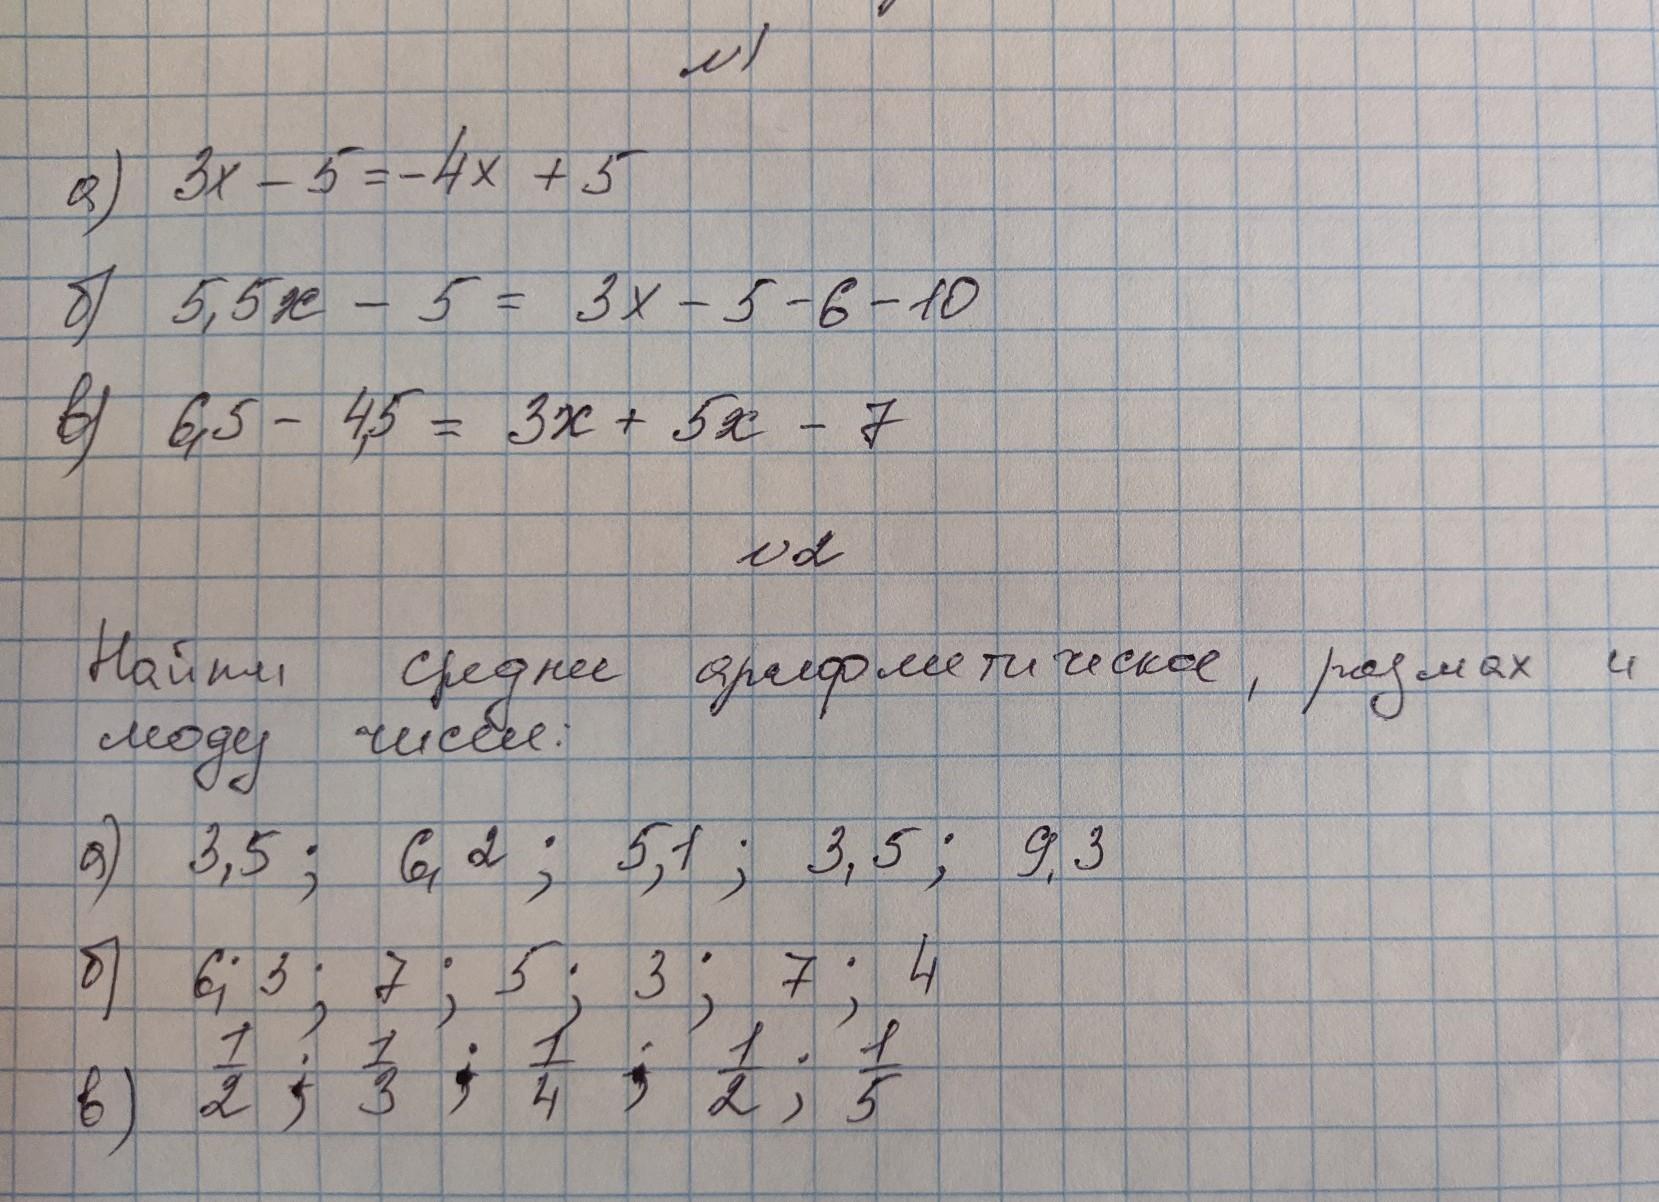 №1
а) 3x - 5 = -4x + 5
б) 5,5x - 5 = 3x - 5 - 6 - 10
в) 6,5 - 4,5 = 3x + 5x - 7
№2
Найти средне арифметическое, размах и
моду чисел:
а) 3,5 ; 6,2 ; 5,1 ; 3,5 ; 9,3
б) 6; 3 ; 7 ; 5 ; 3 ; 7 ; 4
в) 1/2 ; 1/3 ; 1/4 ; 1/2 ; 1/5